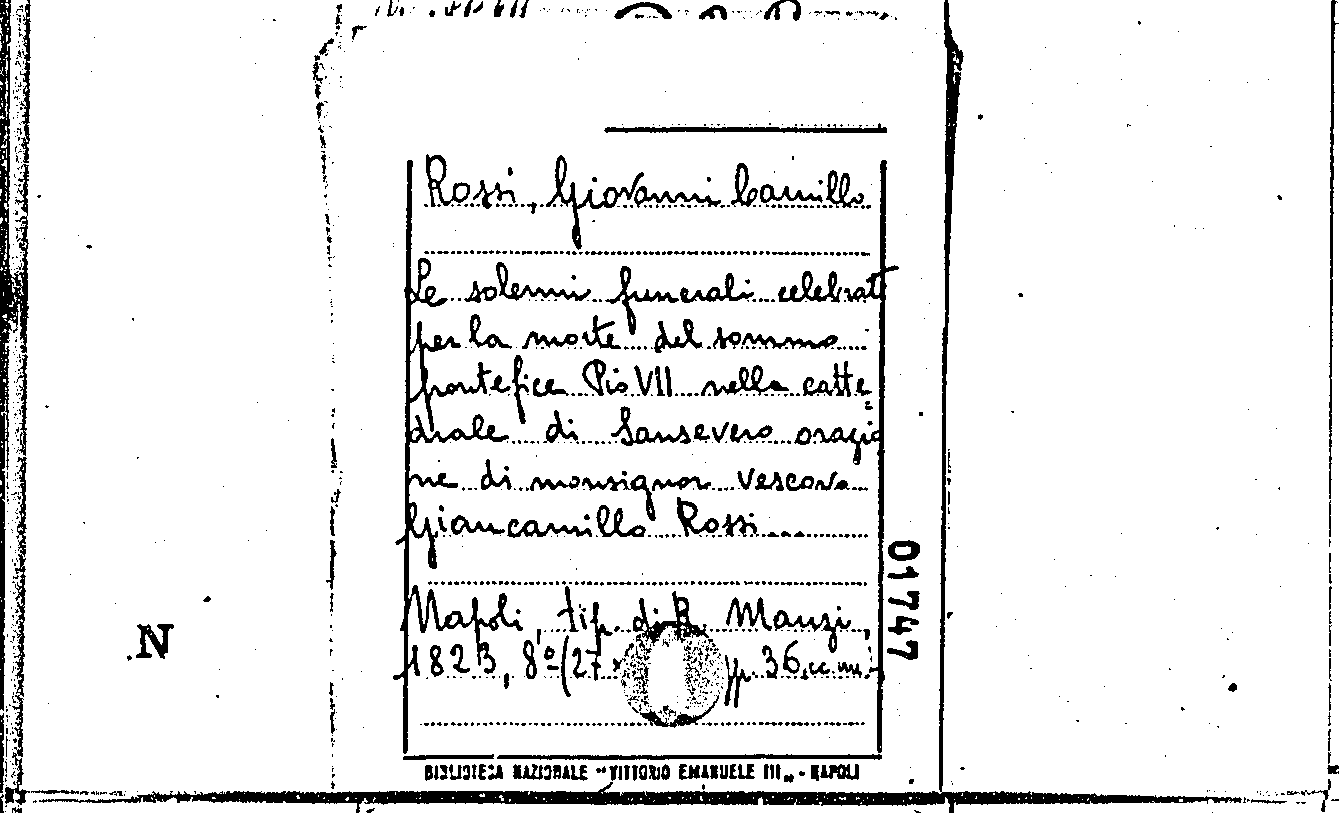 Rossi, Giovanni Camillo
Le solenni funerali celebrati
per la morte del sommo
pontefice Pio VII nella catte=
drale di Sansevero orazio
ne di monsignor vescovo
Giancamillo Rossi...
Napoli, tip. di R. Manzi,
1823, 8º (27 pp. 36,
BIBLIOTECA NAZIONALE "VITTORIO EMANUELE III„ - NAPOLI
01747
N